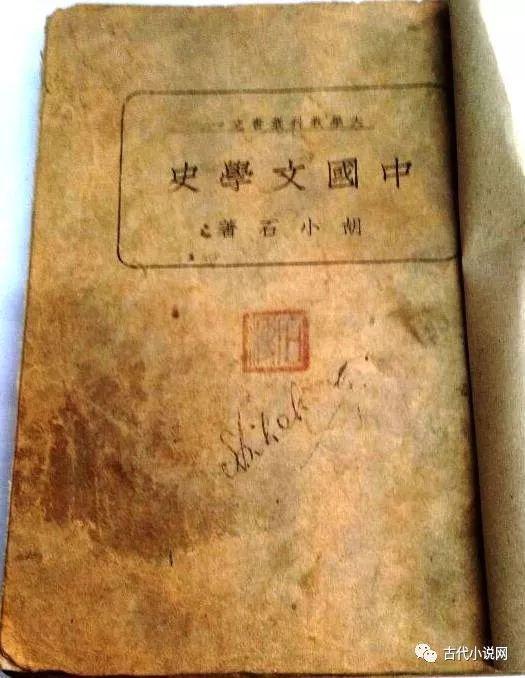 大學教科叢書之一
中國文學史
胡小石著
古代小说网